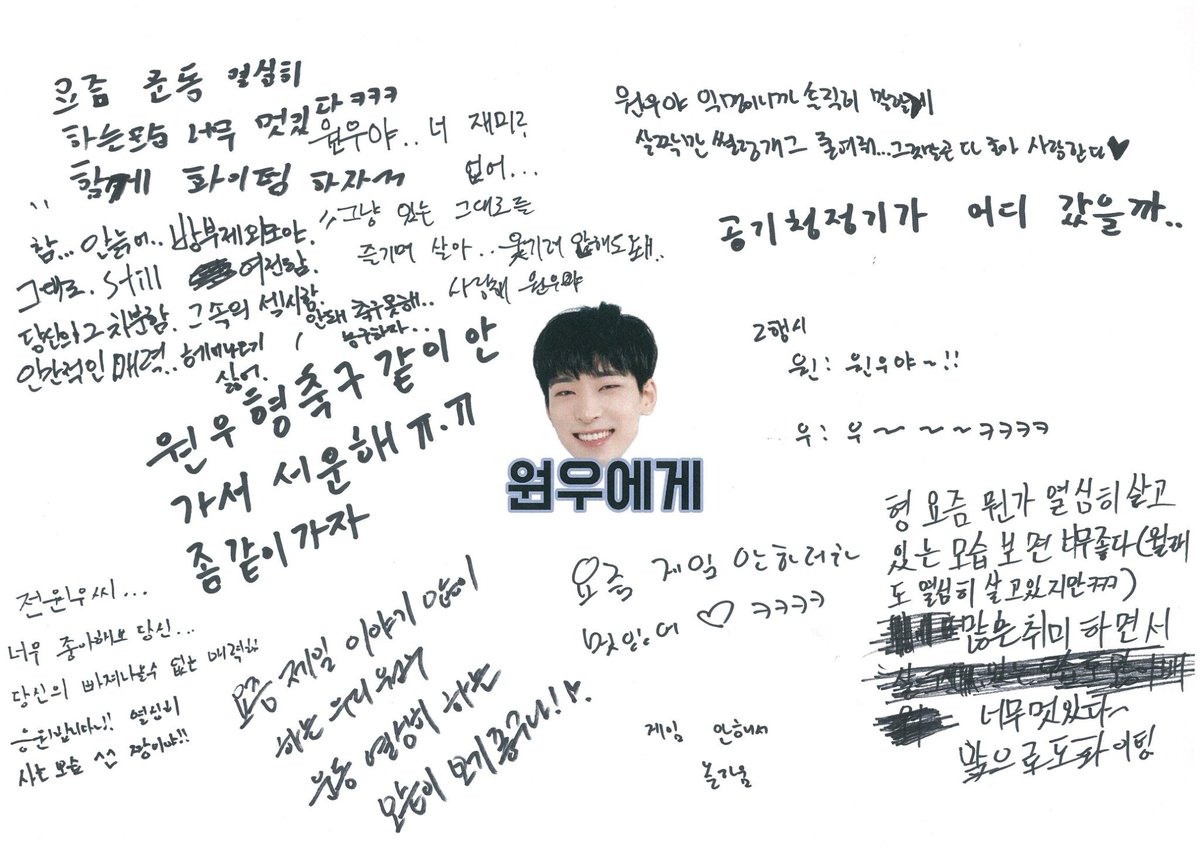 요즘 운동 열심히
하는모습 너무 멋있다ㅋㅋㅋ
함께 화이팅 하자서
원우야.. 너 재미?
없어...
그냥 있는 그대로를
즐기며 살아.. 웃기려 안해도돼..
사랑해 원우야
함... 안늙어.. 방부제외모야.
그대로. Still 여전함.
당신의 그 차분함. 그 속의 섹시함.
인간적인 매력.. 헤어나오기
싫어.
안돼 축구못해..
농구하자..
원우형 축구 같이 안
가서 서운해 ㅠ.ㅠ
좀 같이 가자
전원우씨...
너무 좋아해요 당신...
당신의 빠져나올수 없는 매력!!
응원합니다!! 열심히
사는 모습 짱이야!!
요즘 제일 이야기 많이
하는 우리 원우
운동 열심히 하는
모습이 보기 좋구나!♪
원우에게
원우야 익명이니까 솔직히 말할게
살짝만 썰렁개그 줄여줘... 그것말곤 다 좋아 사랑한다♥
공기청정기가 어디 갔을까..
2행시
원: 원우야~!!
우: 우~~~~ㅋㅋㅋㅋ
형 요즘 뭔가 열심히 살고
있는 모습 보면 너무좋다(원래
도 열심히 살고있지만ㅋㅋ)
많은취미 하면서
너무멋있다~
앞으로도파이팅
요즘 게임 안하더라
멋있어 ♡ ㅋㅋㅋㅋ
게임 안해서
놀라움